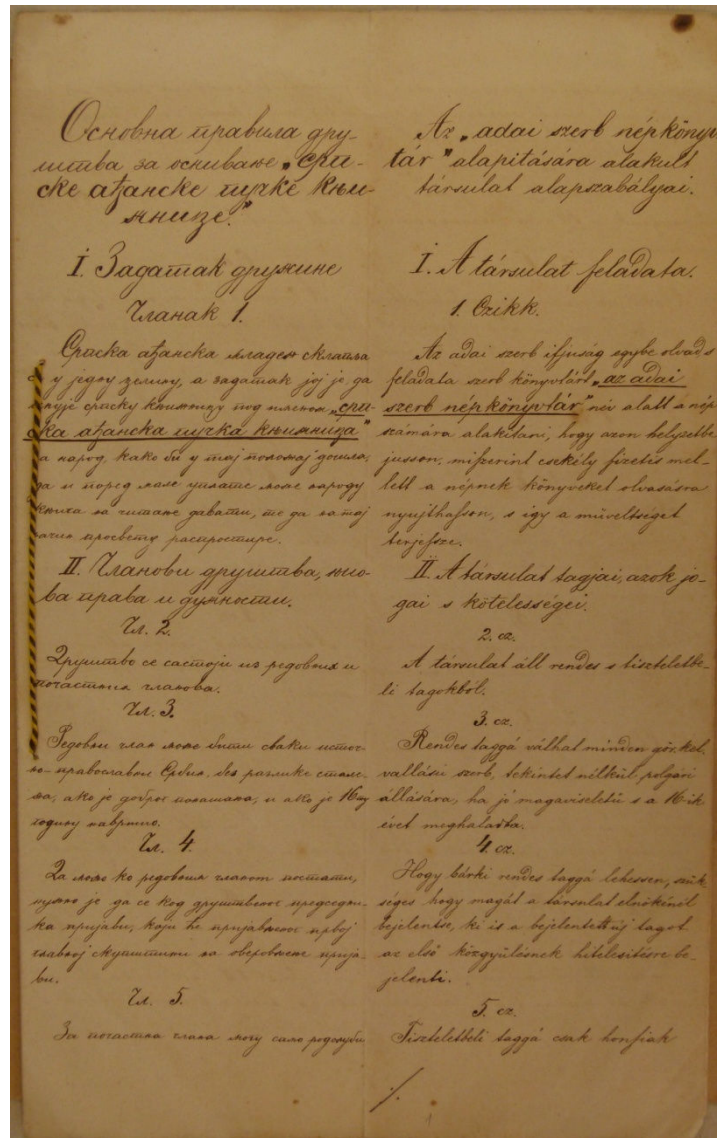 Основна правила дру-
штва за оснивање „срп-
ске ађанске пучке књи-
жнице."
I. Задатак дружине
Чланак 1.
Српска ађанска младеж склапа
у једну целину, а задатак јој је, да
снује српску књижницу под именом „срп-
ска ађанска пучка књижница"
за народ, како би у тај положај дошла,
да и поред мале уплате може народу
књига на читање давати, те да на тај
начин просвету распростире.
II. Чланови друштва, њио-
ва права и дужности.
Чл. 2.
Друштво се састоји из редовних и
почастних чланова.
Чл. 3.
Редовни члан може бити сваки источ-
но-православни Србин, без разлике стале-
жа, ако је доброг понашања, и ако је 16ту
годину навршио.
Чл. 4.
Да може ко редовним чланом постати,
нужно је да се код друштвеног председни-
ка пријави, који ће пријављеног првој
главној скупштини на оверовљење прија-
ви.
Чл. 5.
За почастна члана могу само родољуби
Az „adai szerb népkönyv
tár" alapitására alakult
társulat alapszabályai.
I. A társulat feladata.
1. Czikk.
Az adai szerb ifjuság egybe olvad s
feladata szerb könyvtárt „az adai
szerb népkönyvtár" név alatt a nép
számára alakitani, hogy azon helyzetbe
jusson, miszerint csekély fizetés mel-
lett a népnek könyveket olvasásra
nyujthasson, s igy a müveltséget
terjessze.
II. A társulat tagjai, azok jo-
gai s kötelességei.
2. cz.
A társulat áll rendes s tiszteletbe-
li tagokból.
3. cz.
Rendes taggá válhat minden gör. kel.
vallásu szerb, tekintet nélkül polgári
állására, ha jó magaviseletü s a 16-ik
évet meghaladta.
4. cz.
Hogy bárki rendes taggá lehessen, szük-
séges hogy magát a társulat elnökénél
bejelentse, ki is a bejelentett uj tagot
az első közgyülésnek hitelesitésre be-
jelenti.
5. cz.
Tiszteletbeli taggá csak honfiak
./.
1